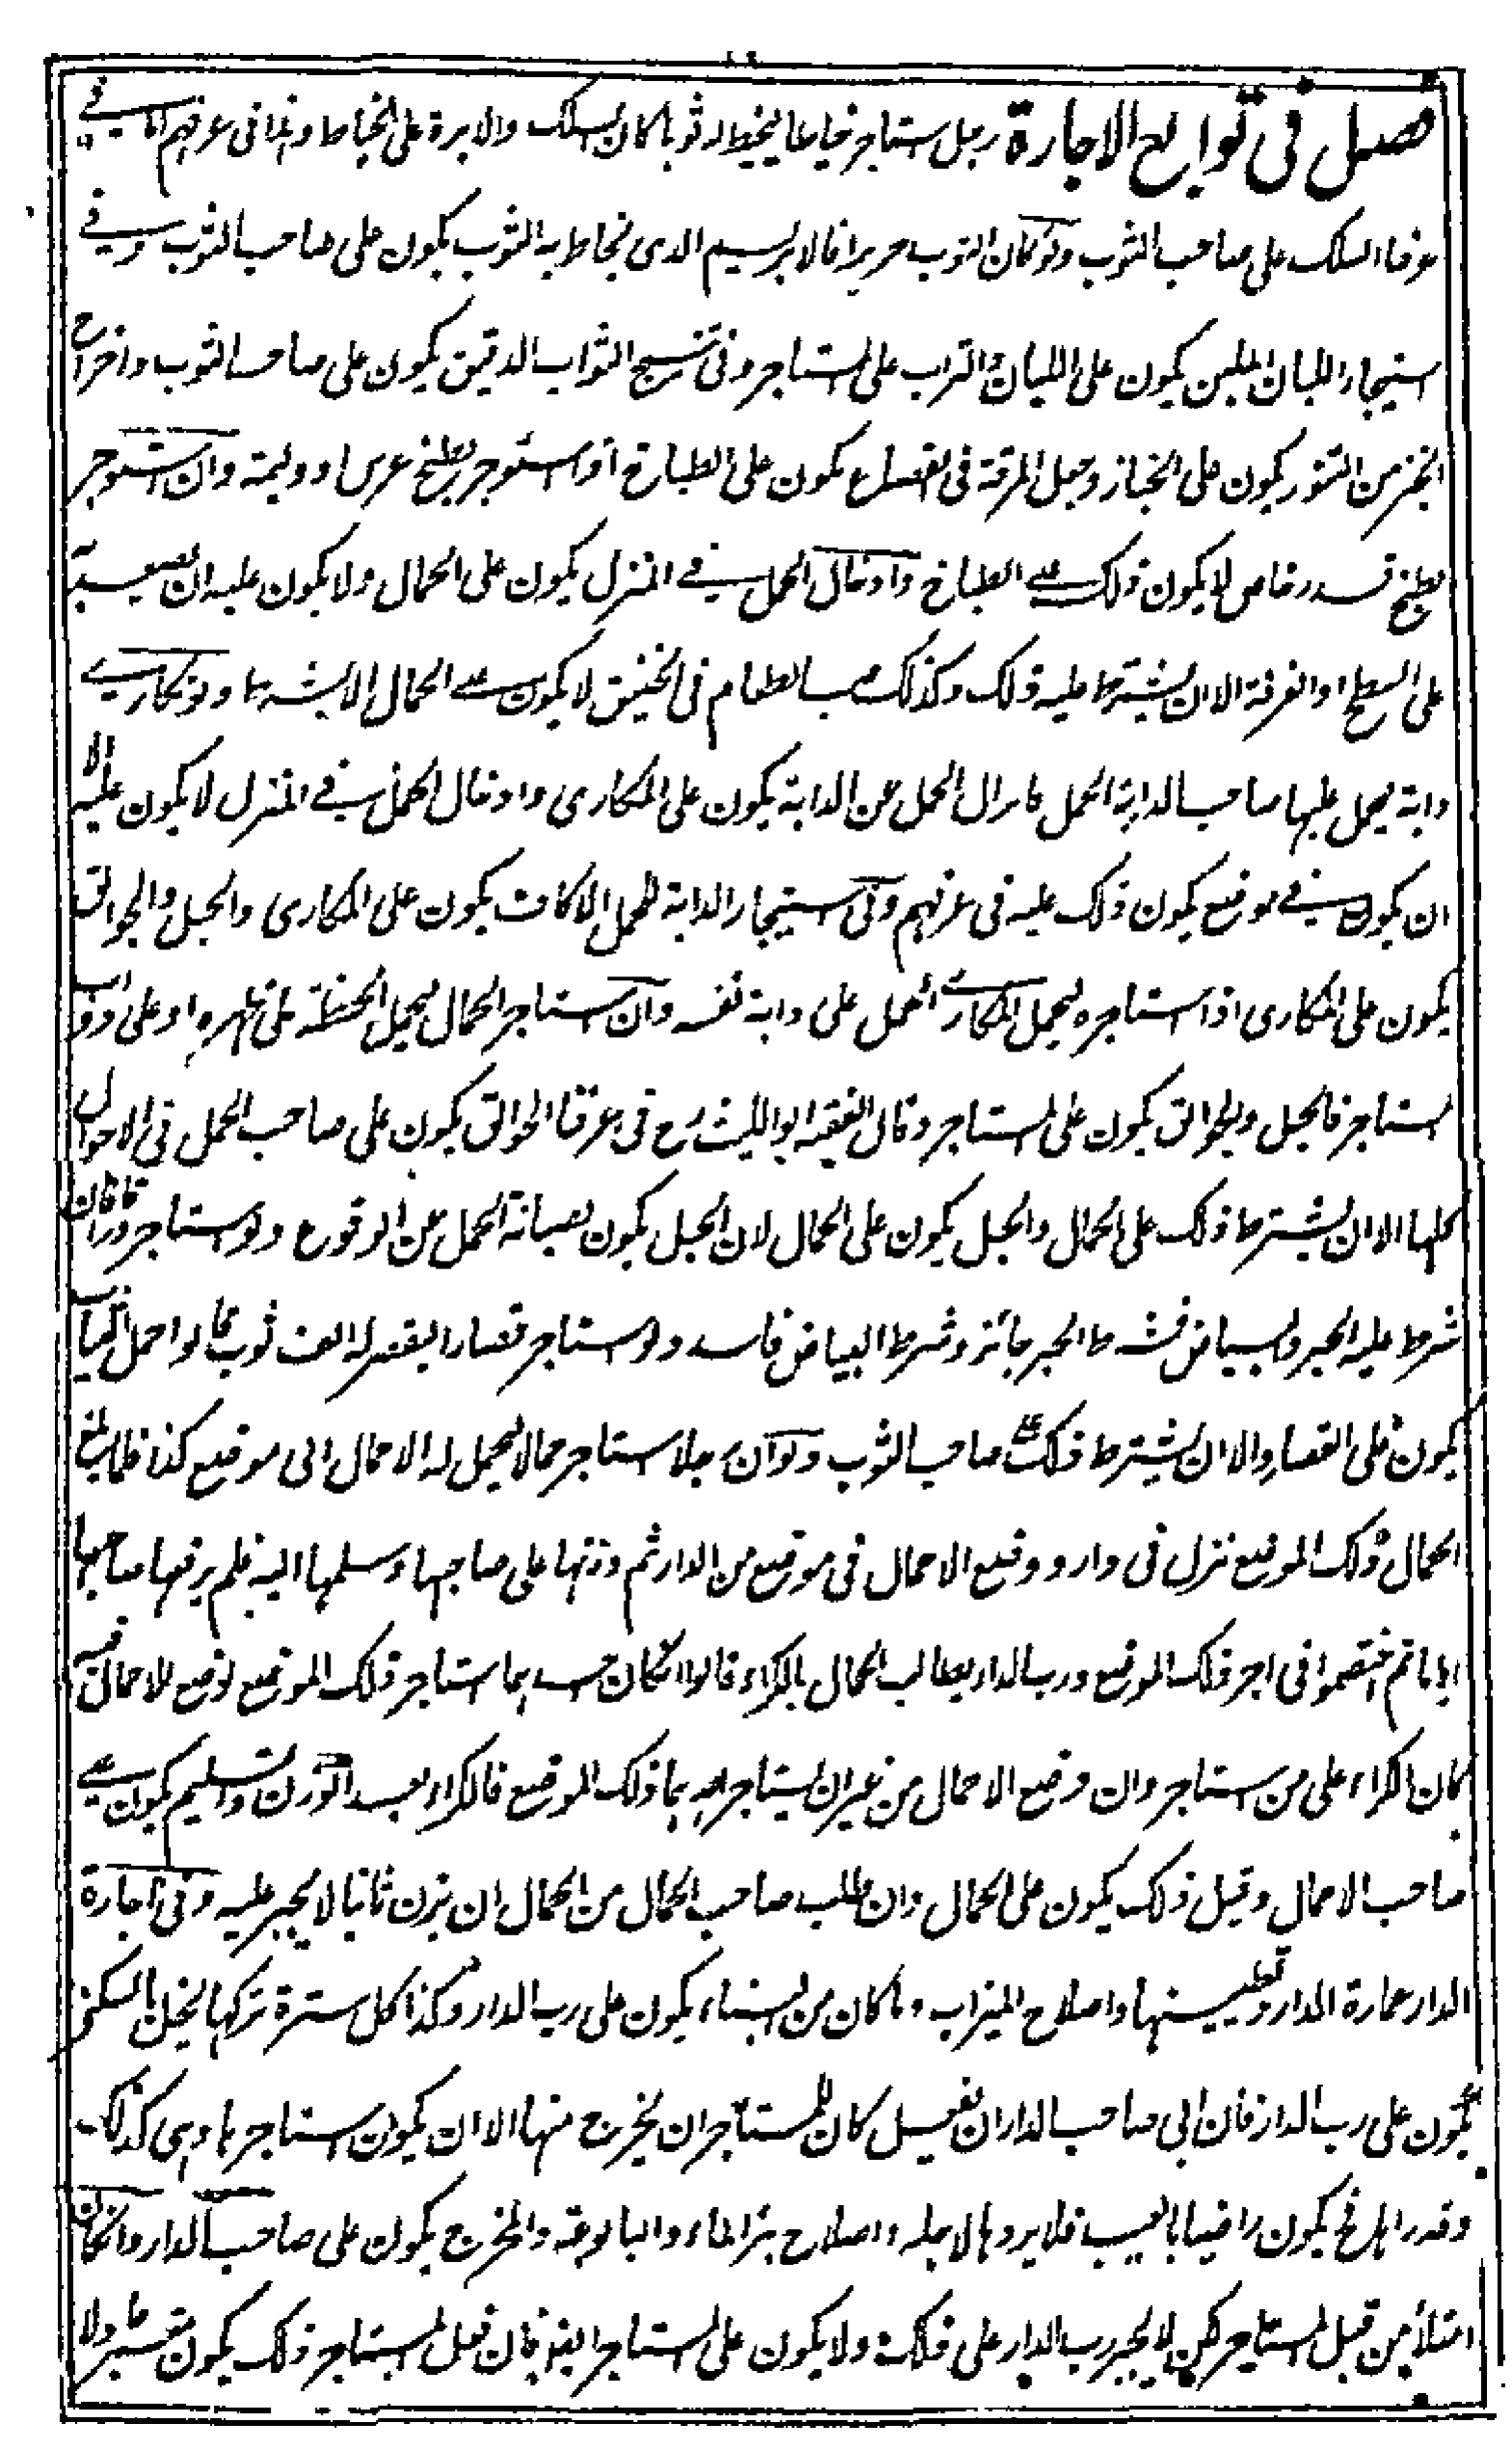 فصل في توابع الاجارة رجل استاجر خياطا ليخيط له ثوبا كان السلك والابرة على الخياط وهذا في عرفهم اما في
عرفنا السلك على صاحب الثوب ولو كان الثوب حريرا فالابريسم الذي يخاط به الثوب يكون على صاحب الثوب وفي
استيجار اللبان الملبن يكون على اللبان والتراب على المستاجر وفي نسج الثواب الدقيق يكون على صاحب الثوب واخراج
الخبز من التنور يكون على الخباز وجعل المرقة في القصاع يكون على الطباخ اذا استوجر لطبخ عرس او وليمة وان استوجر
لطبخ قدر خاص لا يكون ذلك على الطباخ وادخال الحمل في المنزل يكون على الحمال ولا يكون عليه ان يصعد به
على السطح او الغرفة الا ان يشترط عليه ذلك وكذلك صب الطعام في الحنبق لا يكون على الحمال الا بشرط ولو تكارى
دابة يحمل عليها صاحب الدابة الحمل فانزال الحمل عن الدابة يكون على المكاري وادخال الحمل في المنزل لا يكون عليه الا
ان يكون في موضع يكون ذلك عليه في عرفهم وفي استيجار الدابة للحمل الاكاف يكون على المكاري والحبل والجوالق
يكون على المكاري اذا استاجره ليحمل المكاري الحمل على دابة نفسه وان استاجر الحمال ليحمل الحنطة على ظهره او على دواب
استاجر فالحبل والجوالق يكون على المستاجر وقال الفقيه ابو الليث رح في عرفنا الجوالق يكون على صاحب الحمل في الاحوال
كلها الا ان يشترط ذلك على الحمال والحبل يكون على الحمال لان الحبل يكون لصيانة الحمل عن الوقوع ولو استاجر وراقا فان
شرط عليه الحبر والبياض فشرط الحبر جائز وشرط البياض فاسد ولو استاجر قصارا ليقصر له الف ثوب قالوا حمل الثياب
يكون على القصار الا ان يشترط ذلك على صاحب الثوب ولو ان رجلا استاجر حمالا ليحمل له الاحمال الى موضع كذا فلما بلغ
الحمال ذلك الموضع نزل في دار ووضع الاحمال في موضع من الدار ثم وزنها على صاحبها وسلمها اليه فلم يرفعها صاحبها
اياما ثم اختصموا في اجر ذلك الموضع ورب الدار يطالب الحمال بالكراء قالوا ان كان احدهما استاجر ذلك الموضع لوضع الاحمال فيه
كان الكراء على من استاجر وان وضع الاحمال من غير ان يستاجر احدهما ذلك الموضع فالكراء بعد الوزن والتسليم يكون على
صاحب الاحمال وقبل ذلك يكون على الحمال وان طلب صاحب الحمال من الحمال ان يزن ثانيا لا يجبر عليه وفي اجارة
الدار عمارة الدار وتطيينها واصلاح الميزاب وما كان من البناء يكون على رب الدار وكذا كل سترة تركها يخل بالسكنى
يكون على رب الدار فان ابى صاحب الدار ان يفعل كان للمستاجر ان يخرج منها الا ان يكون استاجرها وهي كذلك
وقد راها فح يكون راضيا بالعيب فلا يردها لاجله واصلاح بئر الماء والبالوعة والمخرج يكون على صاحب الدار وان كان
امتلأ من قبل المستاجر لكن لا يجبر رب الدار على ذلك ولا يكون على المستاجر ايضا فان فعل المستاجر ذلك يكون متبرعا ولا